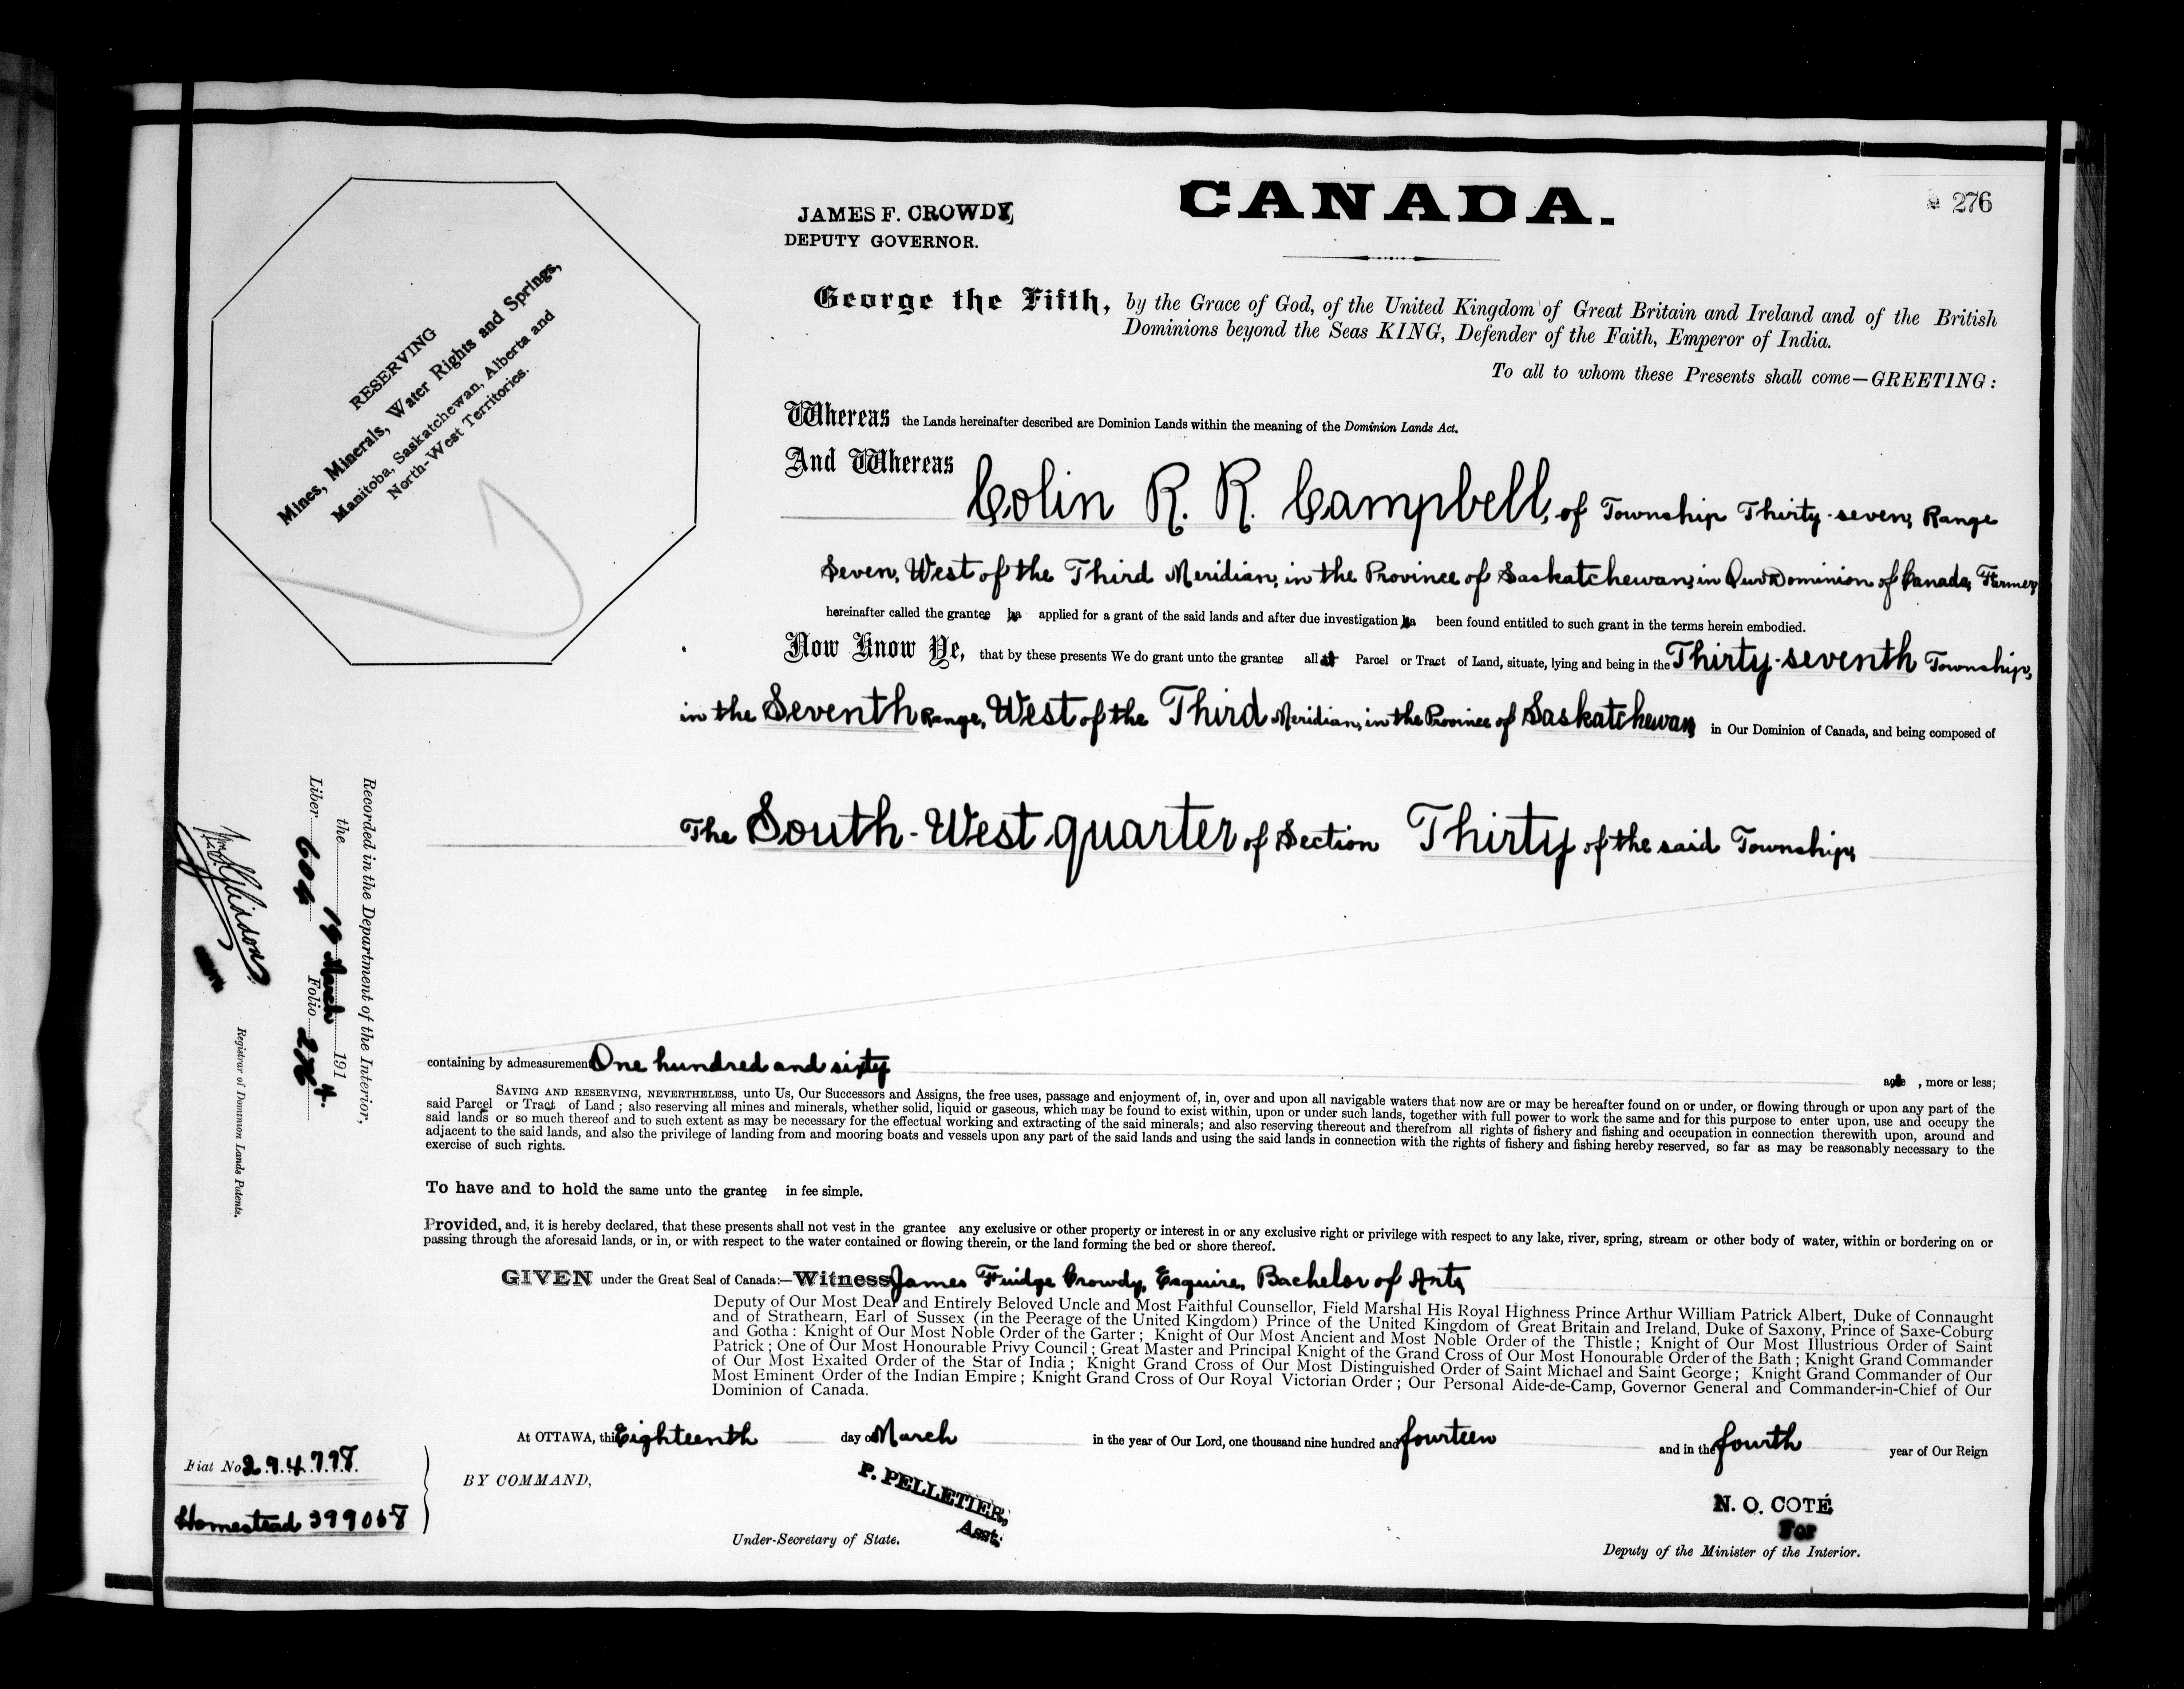 CANADA.
276
JAMES F. CROWDY,
DEPUTY GOVERNOR.
RESERVING
Mines, Minerals, Water Rights and Springs,
Manitoba, Saskatchewan, Alberta and
North-West Territories.
George the Fifth, by the Grace of God, of the United Kingdom of Great Britain and Ireland and of the British
Dominions beyond the Seas KING, Defender of the Faith, Emperor of India.
To all to whom these Presents shall come—GREETING:
Whereas the Lands hereinafter described are Dominion Lands within the meaning of the Dominion Lands Act.
And Whereas Colin R. R. Campbell, of Township Thirty-seven, Range
Seven, West of the Third Meridian, in the Province of Saskatchewan, in Our Dominion of Canada, Farmer,
hereinafter called the grantee ha applied for a grant of the said lands and after due investigation ha been found entitled to such grant in the terms herein embodied.
Now Know Ye, that by these presents We do grant unto the grantee all Parcel or Tract of Land, situate, lying and being in the Thirty-seventh Township,
in the Seventh Range, West of the Third Meridian, in the Province of Saskatchewan, in Our Dominion of Canada, and being composed of
The South-West quarter of Section Thirty of the said Township,
containing by admeasurement One hundred and sixty acre , more or less;
SAVING AND RESERVING, NEVERTHELESS, unto Us, Our Successors and Assigns, the free uses, passage and enjoyment of, in, over and upon all navigable waters that now are or may be hereafter found on or under, or flowing through or upon any part of the
said Parcel or Tract of Land ; also reserving all mines and minerals, whether solid, liquid or gaseous, which may be found to exist within, upon or under such lands, together with full power to work the same and for this purpose to enter upon, use and occupy the
said lands or so much thereof and to such extent as may be necessary for the effectual working and extracting of the said minerals; and also reserving thereout and therefrom all rights of fishery and fishing and occupation in connection therewith upon, around and
adjacent to the said lands, and also the privilege of landing from and mooring boats and vessels upon any part of the said lands and using the said lands in connection with the rights of fishery and fishing hereby reserved, so far as may be reasonably necessary to the
exercise of such rights.
To have and to hold the same unto the grantee in fee simple.
Provided, and, it is hereby declared, that these presents shall not vest in the grantee any exclusive or other property or interest in or any exclusive right or privilege with respect to any lake, river, spring, stream or other body of water, within or bordering on or
passing through the aforesaid lands, or in, or with respect to the water contained or flowing therein, or the land forming the bed or shore thereof.
GIVEN under the Great Seal of Canada:—Witness James Fuidge Crowdy, Esquire, Bachelor of Arts,
Deputy of Our Most Dear and Entirely Beloved Uncle and Most Faithful Counsellor, Field Marshal His Royal Highness Prince Arthur William Patrick Albert, Duke of Connaught
and of Strathearn, Earl of Sussex (in the Peerage of the United Kingdom) Prince of the United Kingdom of Great Britain and Ireland, Duke of Saxony, Prince of Saxe-Coburg
and Gotha : Knight of Our Most Noble Order of the Garter ; Knight of Our Most Ancient and Most Noble Order of the Thistle ; Knight of Our Most Illustrious Order of Saint
Patrick ; One of Our Most Honourable Privy Council ; Great Master and Principal Knight of the Grand Cross of Our Most Honourable Order of the Bath ; Knight Grand Commander
of Our Most Exalted Order of the Star of India ; Knight Grand Cross of Our Most Distinguished Order of Saint Michael and Saint George ; Knight Grand Commander of Our
Most Eminent Order of the Indian Empire ; Knight Grand Cross of Our Royal Victorian Order ; Our Personal Aide-de-Camp, Governor General and Commander-in-Chief of Our
Dominion of Canada.
At OTTAWA, this Eighteenth day of March in the year of Our Lord, one thousand nine hundred and fourteen and in the fourth year of Our Reign
BY COMMAND,
P. PELLETIER,
Asst.
Under-Secretary of State.
N. O. COTÉ
For
Deputy of the Minister of the Interior.
Fiat No 294797.
Homestead 399067
Recorded in the Department of the Interior,
the 19 March 1914.
Liber 604 Folio 276
Registrar of Dominion Lands Patents.